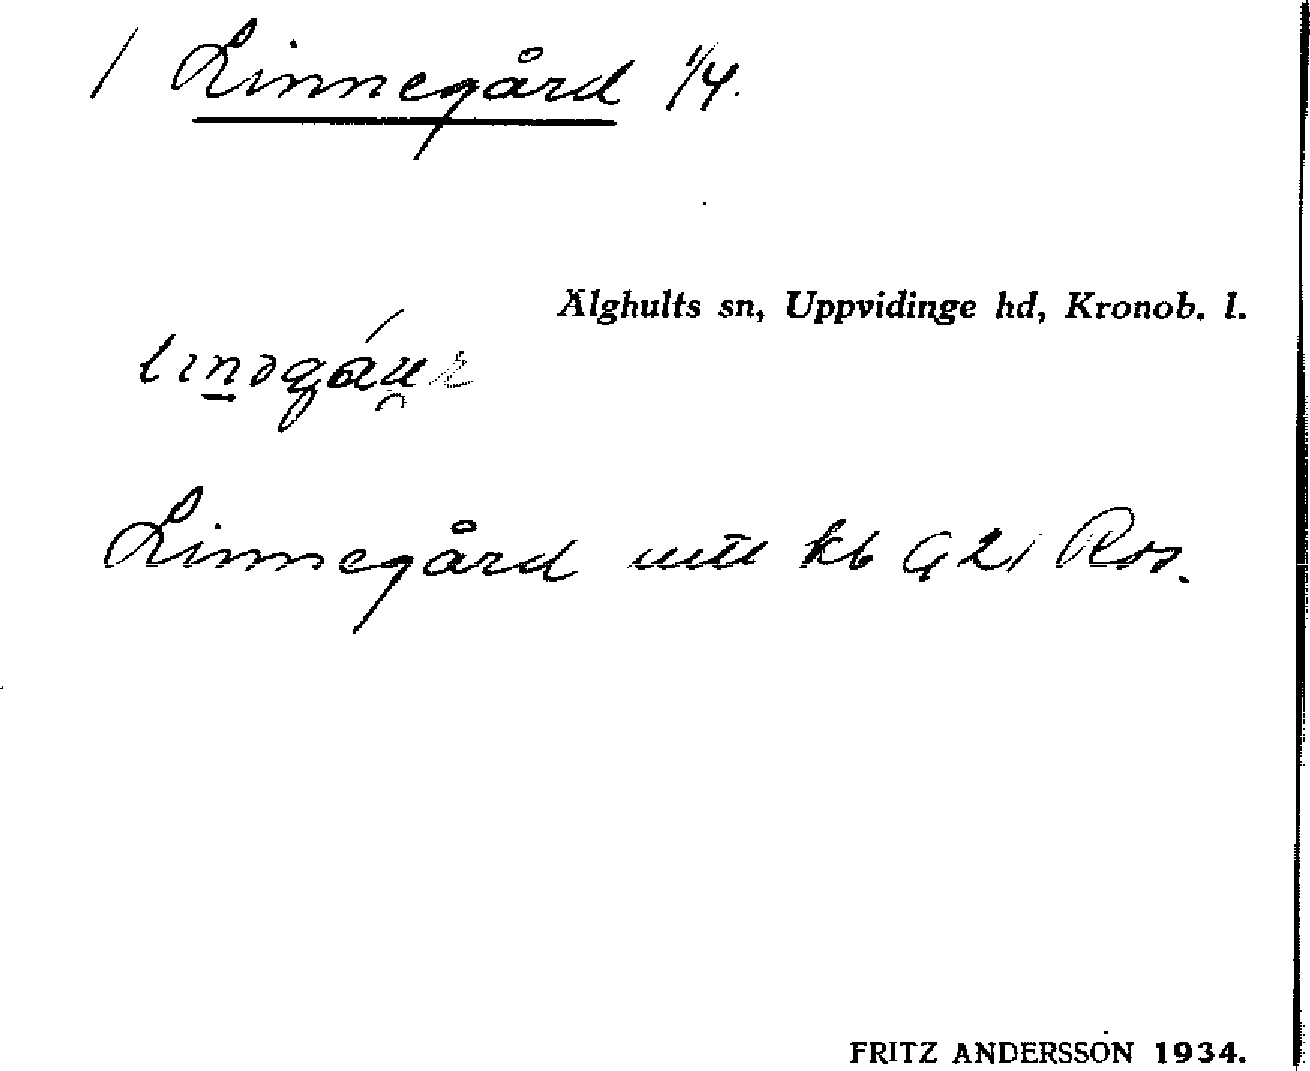 1 Linnegård 1/4.
Älghults sn, Uppvidinge hd, Kronob. l.
Linnegård kb
FRITZ ANDERSSON 1934.